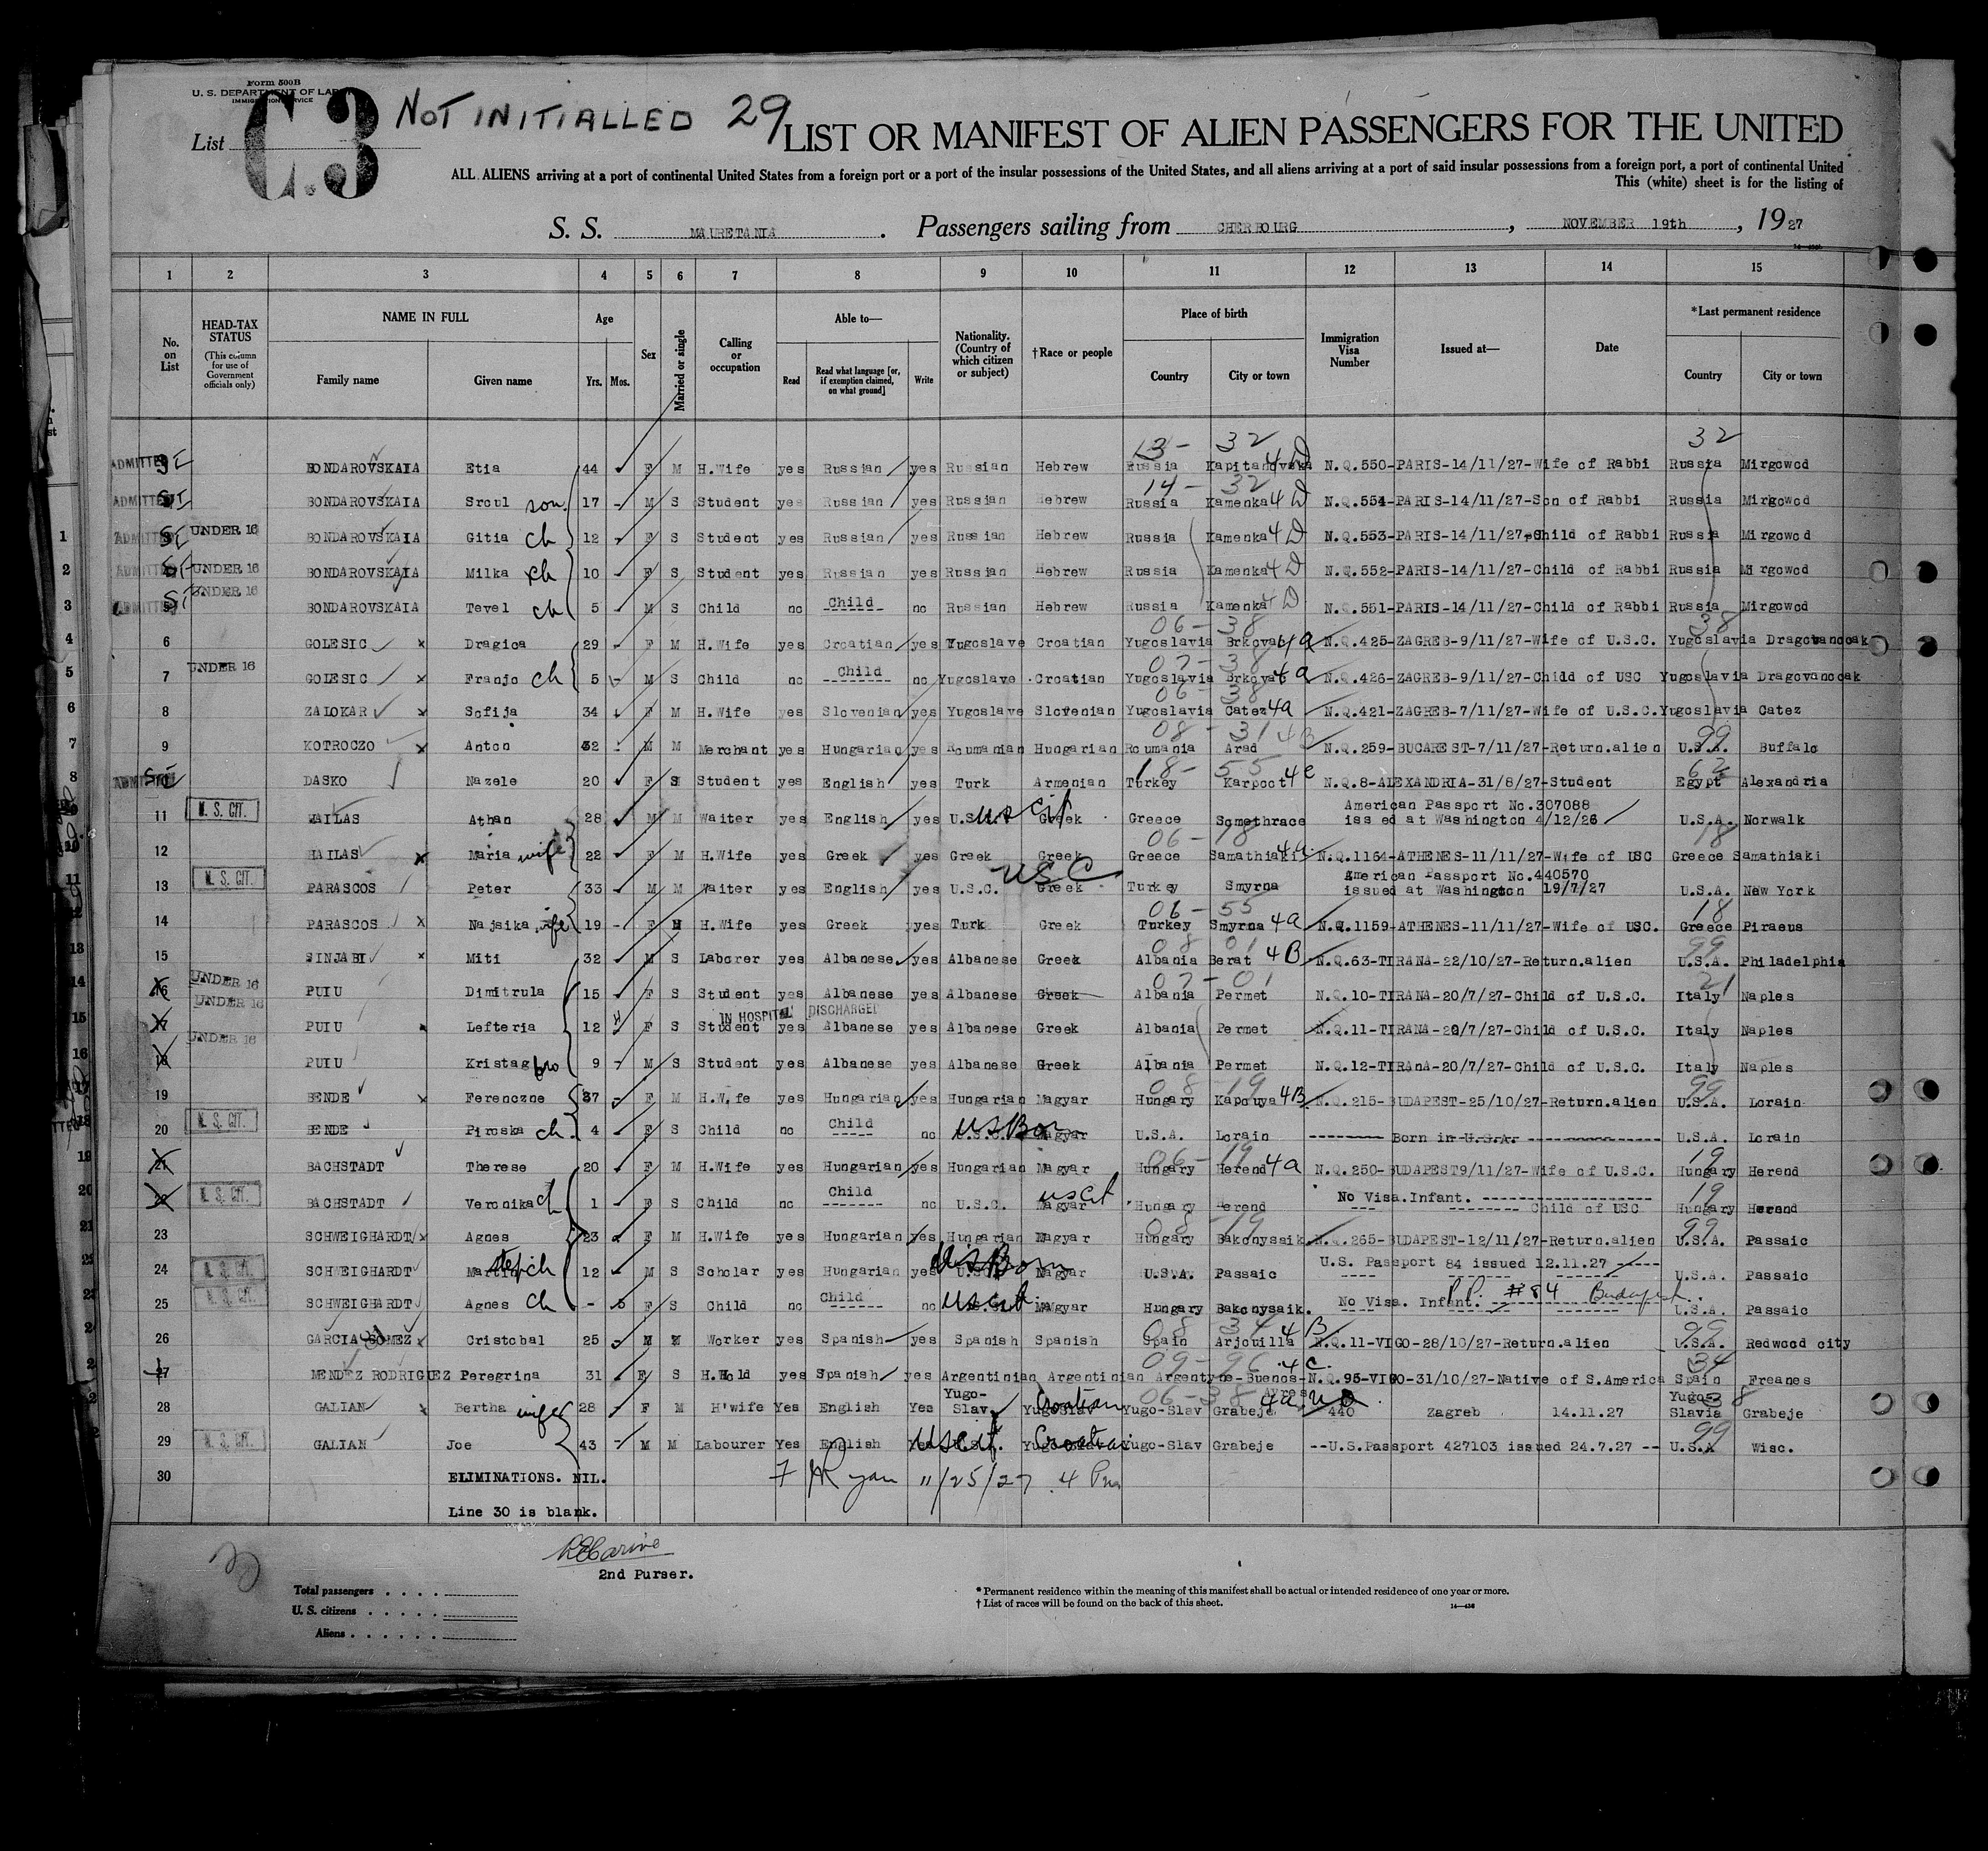 Form 500B
U. S. DEPARTMENT OF LABOR
IMMIGRATION SERVICE
List C.3 NOT INITIALLED 29
LIST OR MANIFEST OF ALIEN PASSENGERS FOR THE UNITED
ALL ALIENS arriving at a port of continental United States from a foreign port or a port of the insular possessions of the United States, and all aliens arriving at a port of said insular possessions from a foreign port, a port of continental United
This (white) sheet is for the listing of
S. S. MAURETANIA. Passengers sailing from CHERBOURG, NOVEMBER 19th, 1927
1 2 3 4 5 6 7 8 9 10 11 12 13 14 15
No. on List
HEAD-TAX STATUS (This column for use of Government officials only)
NAME IN FULL
Family name Given name
Age
Yrs. Mos.
Sex
Married or single
Calling or occupation
Able to—
Read Read what language [or, if exemption claimed, on what ground] Write
Nationality. (Country of which citizen or subject)
†Race or people
Place of birth
Country City or town
Immigration Visa Number
Issued at—
Date
*Last permanent residence
Country City or town
13- 32 32
ADMITTED SI BONDAROVSKAIA Etia 44 F M H.Wife yes Russian yes Russian Hebrew Russia Kapitanovska 4D N.Q.550-PARIS-14/11/27-Wife of Rabbi Russia Mirgowod
14- 32
ADMITTED SI BONDAROVSKAIA Sroul son 17 M S Student yes Russian yes Russian Hebrew Russia Kamenka 4D N.Q.554-PARIS-14/11/27-Son of Rabbi Russia Mirgowod
ADMITTED SI UNDER 16 BONDAROVSKAIA Gitia ch 12 F S Student yes Russian yes Russian Hebrew Russia Kamenka 4D N.Q.553-PARIS-14/11/27-Child of Rabbi Russia Mirgowod
ADMITTED SI UNDER 16 BONDAROVSKAIA Milka ch 10 F S Student yes Russian yes Russian Hebrew Russia Kamenka 4D N.Q.552-PARIS-14/11/27-Child of Rabbi Russia Mirgowod
ADMITTED SI UNDER 16 BONDAROVSKAIA Tevel ch 5 M S Child no Child no Russian Hebrew Russia Kamenka 4D N.Q.551-PARIS-14/11/27-Child of Rabbi Russia Mirgowod
06-38 38
6 GOLESIC x Dragica 29 F M H.Wife yes Croatian yes Yugoslave Croatian Yugoslavia Brkovak 4a N.Q.425-ZAGREB-9/11/27-Wife of U.S.C. Yugoslavia Dragovanocak
07-38
7 UNDER 16 GOLESIC x Franjo ch 5 M S Child no Child no Yugoslave Croatian Yugoslavia Brkovak 4a N.Q.426-ZAGREB-9/11/27-Child of USC Yugoslavia Dragovanocak
06-38
8 ZALOKAR x Sofija 34 F M H.Wife yes Slovenian yes Yugoslave Slovenian Yugoslavia Catez 4a N.Q.421-ZAGREB-7/11/27-Wife of U.S.C. Yugoslavia Catez
08-31 99
9 KOTROCZO x Anton 32 M M Merchant yes Hungarian yes Roumanian Hungarian Roumania Arad 4B N.Q.259-BUCAREST-7/11/27-Return.alien U.S.A. Buffalo
18-55
ADMITTED SI DASKO Nazele 20 F S Student yes English yes Turk Armenian Turkey Karpoot 4c N.Q.8-ALEXANDRIA-31/8/27-Student Egypt Alexandria
11 U. S. CIT. MAILAS Athan 28 M M Waiter yes English yes U.S.C. US Cit Greek Greece Somethrace American Passport No.307088 issued at Washington 4/12/26 U.S.A. Norwalk
06-18 18
12 MAILAS x Maria wife 22 F M H.Wife yes Greek yes Greek Greek Greece Samathiaki 4a N.Q.1164-ATHENES-11/11/27-Wife of USC Greece Samathiaki
13 U. S. CIT. PARASCOS Peter 33 M M Waiter yes English yes U.S.C. USC Greek Turkey Smyrna American Passport No.440570 issued at Washington 19/7/27 U.S.A. New York
06-55 18
14 PARASCOS x Najsika wife 19 F M H.Wife yes Greek yes Turk Greek Turkey Smyrna 4a N.Q.1159-ATHENES-11/11/27-Wife of USC. Greece Piraeus
08 01 99
15 SINJABI x Miti 32 M S Laborer yes Albanese yes Albanese Greek Albania Berat 4B N.Q.63-TIRANA-22/10/27-Return.alien U.S.A. Philadelphia
07-01 21
16 UNDER 16 PUIU Dimitrula 15 F S Student yes Albanese yes Albanese Greek Albania Permet N.Q.10-TIRANA-20/7/27-Child of U.S.C. Italy Naples
IN HOSPITAL DISCHARGED
17 UNDER 16 PUIU Lefteria 12 F S Student yes Albanese yes Albanese Greek Albania Permet N.Q.11-TIRANA-20/7/27-Child of U.S.C. Italy Naples
18 UNDER 16 PUIU Kristag bro 9 M S Student yes Albanese yes Albanese Greek Albania Permet N.Q.12-TIRANA-20/7/27-Child of U.S.C. Italy Naples
08 19 99
19 BENDE x Ferenczne 37 F M H.Wife yes Hungarian yes Hungarian Magyar Hungary Kapouya 4B N.Q.215-BUDAPEST-25/10/27-Return.alien U.S.A. Lorain
20 U. S. CIT. BENDE Piroska ch. 4 F S Child no Child no U.S.C. US Born Magyar U.S.A. Lorain Born in U.S.A. U.S.A. Lorain
06-19 19
21 BACHSTADT Therese 20 F M H.Wife yes Hungarian yes Hungarian Magyar Hungary Herend 4a N.Q.250-BUDAPEST9/11/27-Wife of U.S.C. Hungary Herend
22 U. S. CIT. BACHSTADT Veronika ch 1 F S Child no Child no U.S.C. US Cit Magyar Hungary Herend No Visa.Infant. Child of USC 19 Hungary Herend
08-19 99
23 SCHWEIGHARDT x Agnes 23 F M H.Wife yes Hungarian yes Hungarian Magyar Hungary Bakonysaik N.Q.265-BUDAPEST-12/11/27-Return.alien U.S.A. Passaic
24 U. S. CIT. SCHWEIGHARDT Martin step ch 12 M S Scholar yes Hungarian yes U.S.C. US Born Magyar U.S.A. Passaic U.S. Passport 84 issued 12.11.27 U.S.A. Passaic
25 U. S. CIT. SCHWEIGHARDT Agnes ch - 5 F S Child no Child no US Cit. Magyar Hungary Bakonysaik. No Visa. Infant. P.P. #84 Budapest U.S.A. Passaic
08 34 99
26 GARCIA GOMEZ Cristobal 25 M M Worker yes Spanish yes Spanish Spanish Spain Arjouilla 4B N.Q.11-VIGO-28/10/27-Return.alien U.S.A. Redwood city
09-96 4c. 34
27 MENDEZ RODRIGUEZ Peregrina 31 F S H.Hold yes Spanish yes Argentinian Argentinian Argentyne-Buenos-Ayres N.Q.95-VIGO-31/10/27-Native of S.America Spain Freanes
06-38 38
28 GALIAN x Bertha wife 28 F M H'wife Yes English Yes Yugo-Slav Yugoslav Croatian Yugo-Slav Grabeje 4a 440 Zagreb 14.11.27 Yugo-Slavia Grabeje
29 U. S. CIT. GALIAN Joe 43 M M Labourer Yes English Yes US Cit. Croatian Yugo-Slav Grabeje --U.S.Passport 427103 issued 24.7.27 -- 99 U.S.A Wisc.
30 ELIMINATIONS. NIL. Ryan 11/25/27 4 Pm
Line 30 is blank.
2nd Purser.
Total passengers
U. S. citizens
Aliens
* Permanent residence within the meaning of this manifest shall be actual or intended residence of one year or more.
† List of races will be found on the back of this sheet.